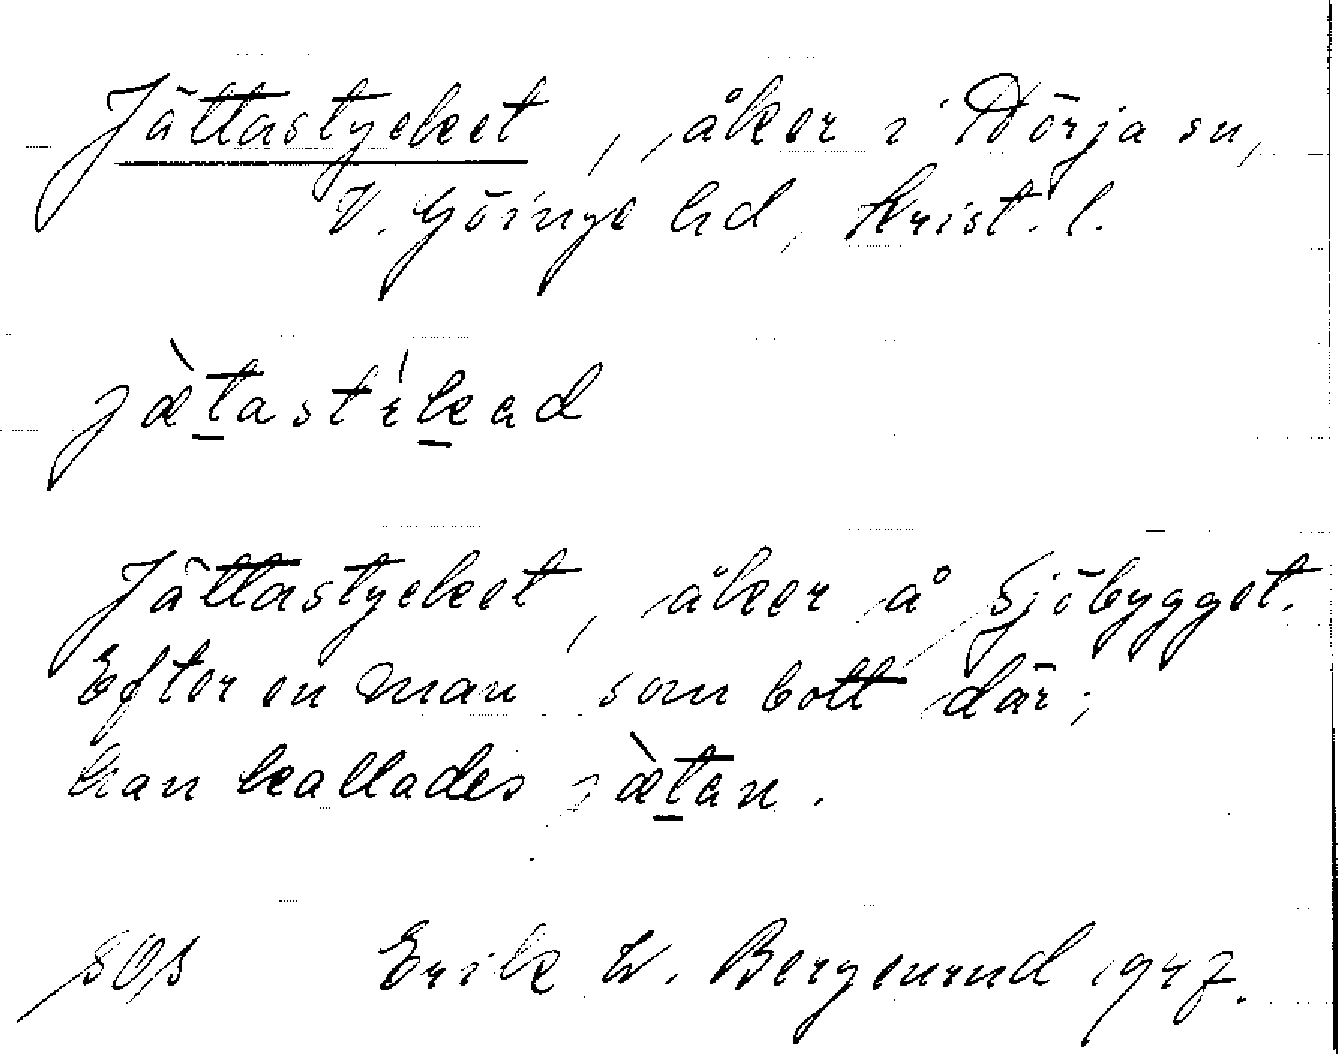 Jättastycket, åker i Nörja sn,
V. Göinge hd, Krist. l.
jæ̀tastìkəd
Jättastycket, åker å Sjöbygget.
Efter en man som bott där;
han kallades jæ̀tan.
SOS Erik W. Bergenrud 1947.